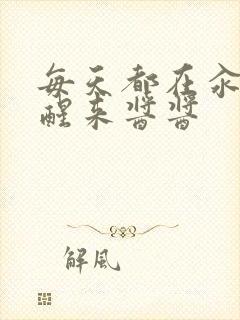 每天都在汆
醒来酱酱
解風